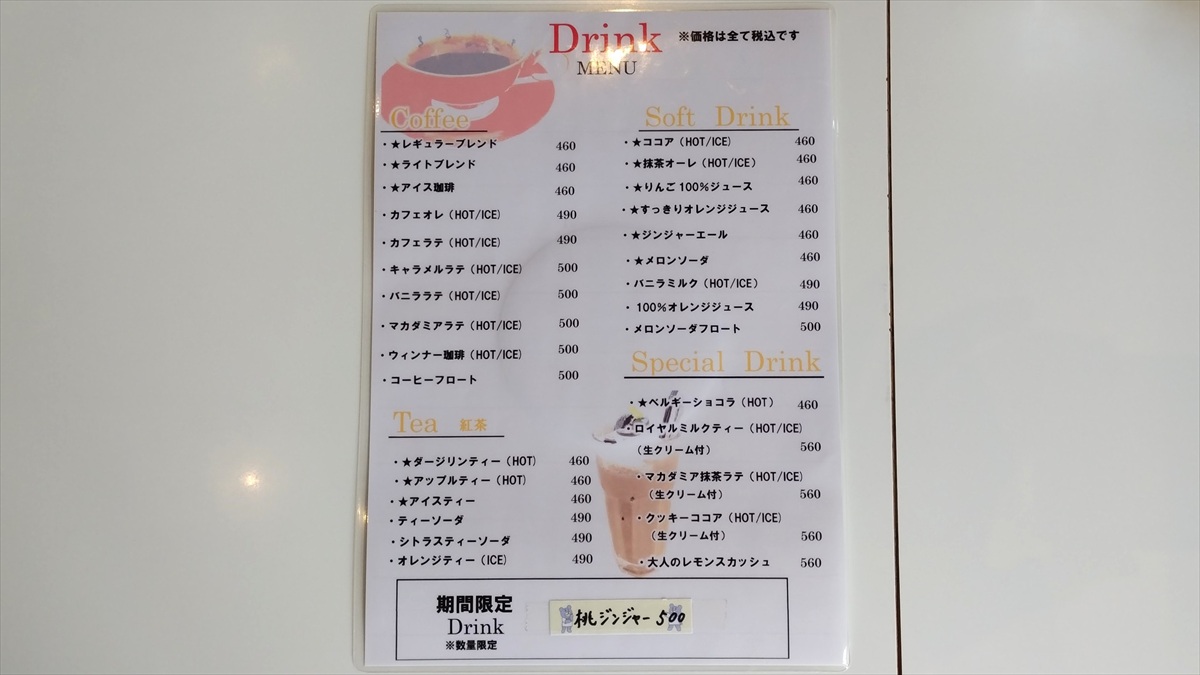 Drink
MENU
※価格は全て税込です
Coffee
・★レギュラーブレンド 460
・★ライトブレンド 460
・★アイス珈琲 460
・カフェオレ（HOT/ICE） 490
・カフェラテ（HOT/ICE） 490
・キャラメルラテ（HOT/ICE） 500
・バニララテ（HOT/ICE） 500
・マカダミアラテ（HOT/ICE） 500
・ウィンナー珈琲（HOT/ICE） 500
・コーヒーフロート 500
Tea 紅茶
・★ダージリンティー（HOT） 460
・★アップルティー（HOT） 460
・★アイスティー 460
・ティーソーダ 490
・シトラスティーソーダ 490
・オレンジティー（ICE） 490
Soft Drink
・★ココア（HOT/ICE） 460
・★抹茶オーレ（HOT/ICE） 460
・★りんご100%ジュース 460
・★すっきりオレンジジュース 460
・★ジンジャーエール 460
・★メロンソーダ 460
・バニラミルク（HOT/ICE） 490
・100%オレンジジュース 490
・メロンソーダフロート 500
Special Drink
・★ベルギーショコラ（HOT） 460
・ロイヤルミルクティー（HOT/ICE）
（生クリーム付） 560
・マカダミア抹茶ラテ（HOT/ICE）
（生クリーム付） 560
・クッキーココア（HOT/ICE）
（生クリーム付） 560
・大人のレモンスカッシュ 560
期間限定
Drink
※数量限定
桃ジンジャー 500